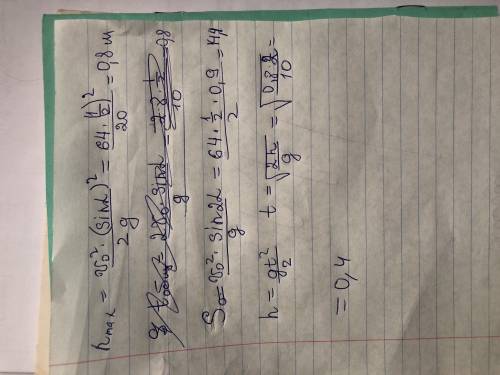 h max = v₀² · (sin α)² / 2g = 64 · (1/2)² / 20 = 0,8 м
S₀ = v₀² · sin2α / g = 64 · 1/2 · 0,9 / 2 =
h = gt²/2 t = √(2h/g) = √(0,8·2/10) =
= 0,4